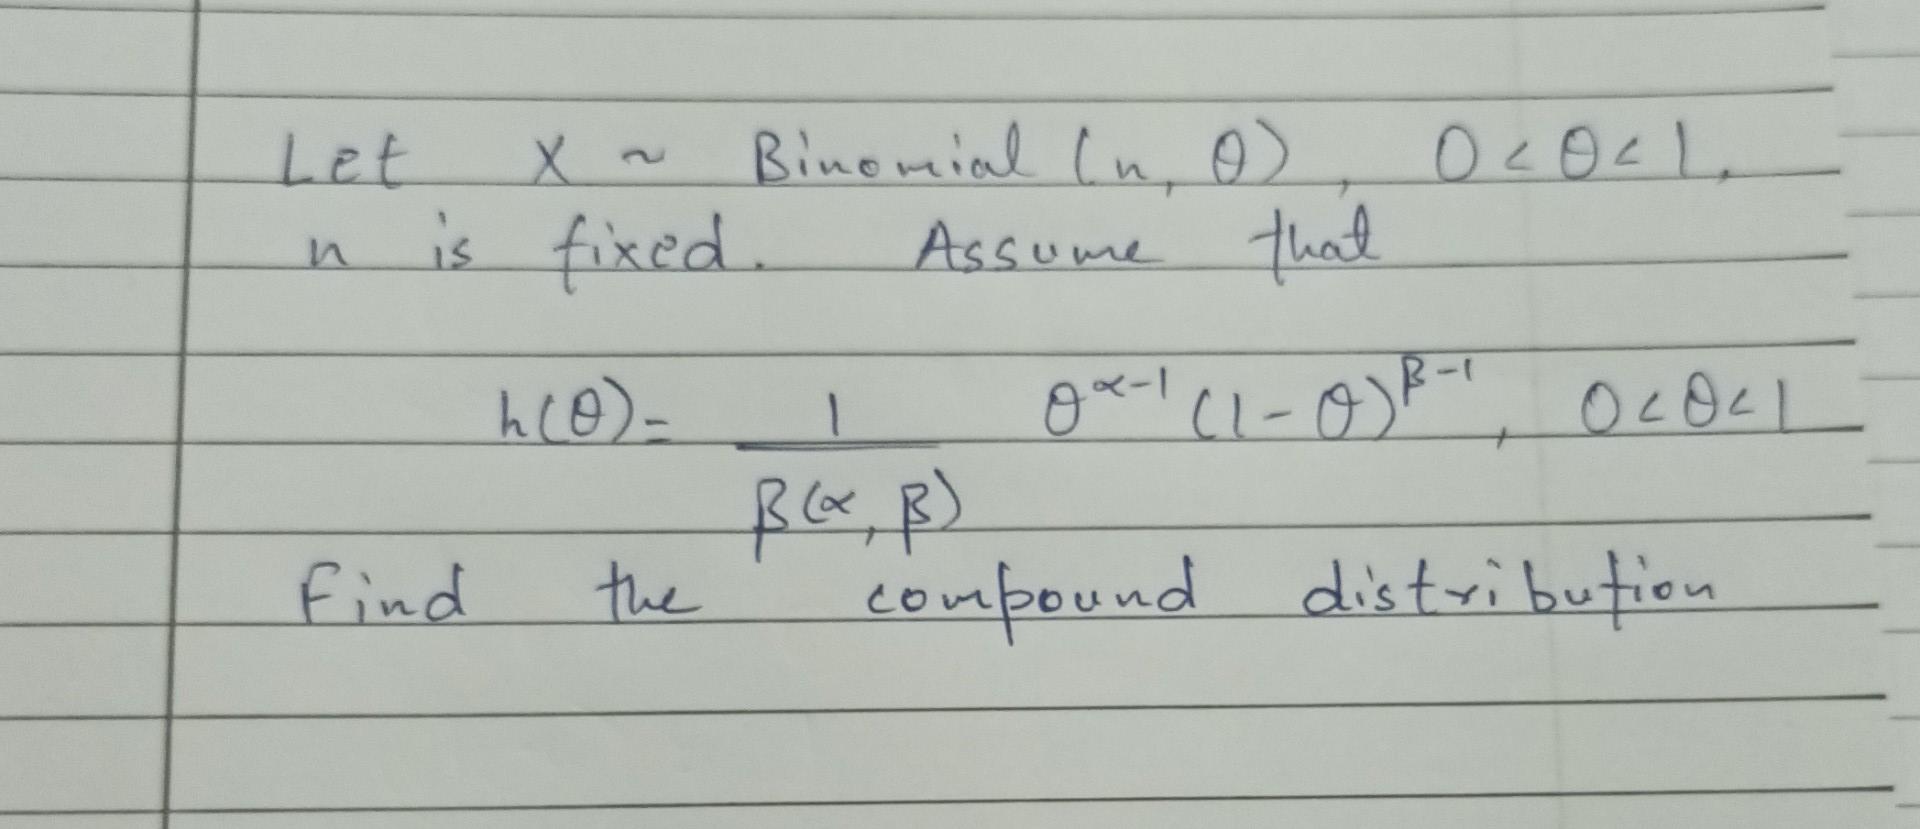 Let X ~ Binomial (n, θ), 0 < θ < 1,
n is fixed. Assume that
h(θ) = 1 / β(α, β) θ^α-1 (1 - θ)^β-1, 0 < θ < 1
Find the compound distribution